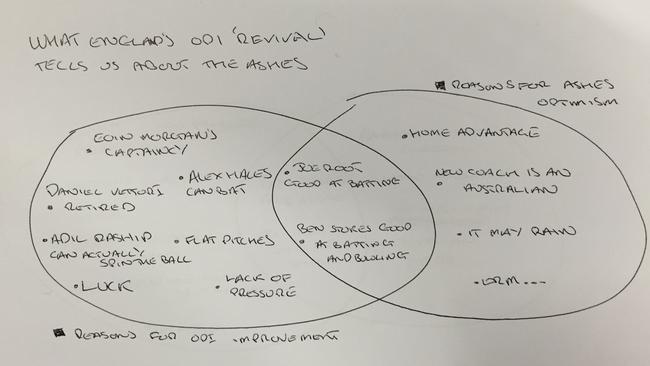 WHAT ENGLAND'S ODI 'REVIVAL'
TELLS US ABOUT THE ASHES
REASONS FOR ASHES
OPTIMISM
EOIN MORGAN'S
CAPTAINCY
ALEX HALES
CAN BAT
DANIEL VETTORI
RETIRED
ADIL RASHID
CAN ACTUALLY
SPIN THE BALL
FLAT PITCHES
LUCK
LACK OF
PRESSURE
JOE ROOT
GOOD AT BATTING
BEN STOKES GOOD
AT BATTING
AND BOWLING
HOME ADVANTAGE
NEW COACH IS AN
AUSTRALIAN
IT MAY RAIN
ERM...
REASONS FOR ODI IMPROVEMENT